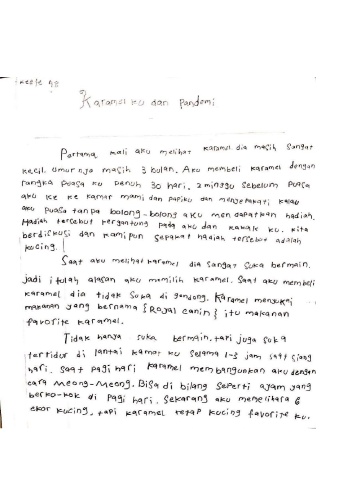 Karamel ku dan Pandemi
Pertama kali aku melihat karamel dia masih sangat
kecil. Umur nya masih 3 bulan. Aku membeli karamel dengan
rangka Puasa ku penuh 30 hari. 2 minggu sebelum puasa
aku ke ke kamar mami dan papiku dan menyepakati kalau
aku puasa tanpa bolong-bolong aku men dapatkan hadiah.
Hadiah tersebut tergantung pada aku dan kakak ku. Kita
berdiskusi dan kamipun sepakat hadiah tersebut adalah
kucing.
Saat aku melihat karamel dia sangat suka bermain.
jadi itulah alasan aku memilih karamel. Saat aku membeli
karamel dia tidak suka di gendong. Karamel menyukai
makanan yang bernama {Royal canin} itu makanan
favorite karamel.
Tidak hanya suka bermain, tapi juga suka
tertidur di lantai kamar ku selama 1-3 jam saat siang
hari. Saat pagi hari karamel membangunkan aku dengan
cara meong-meong. Bisa di bilang seperti ayam yang
berko-kok di pagi hari. Sekarang aku memelihara 6
ekor kucing, tapi karamel tetap kucing favorite ku.